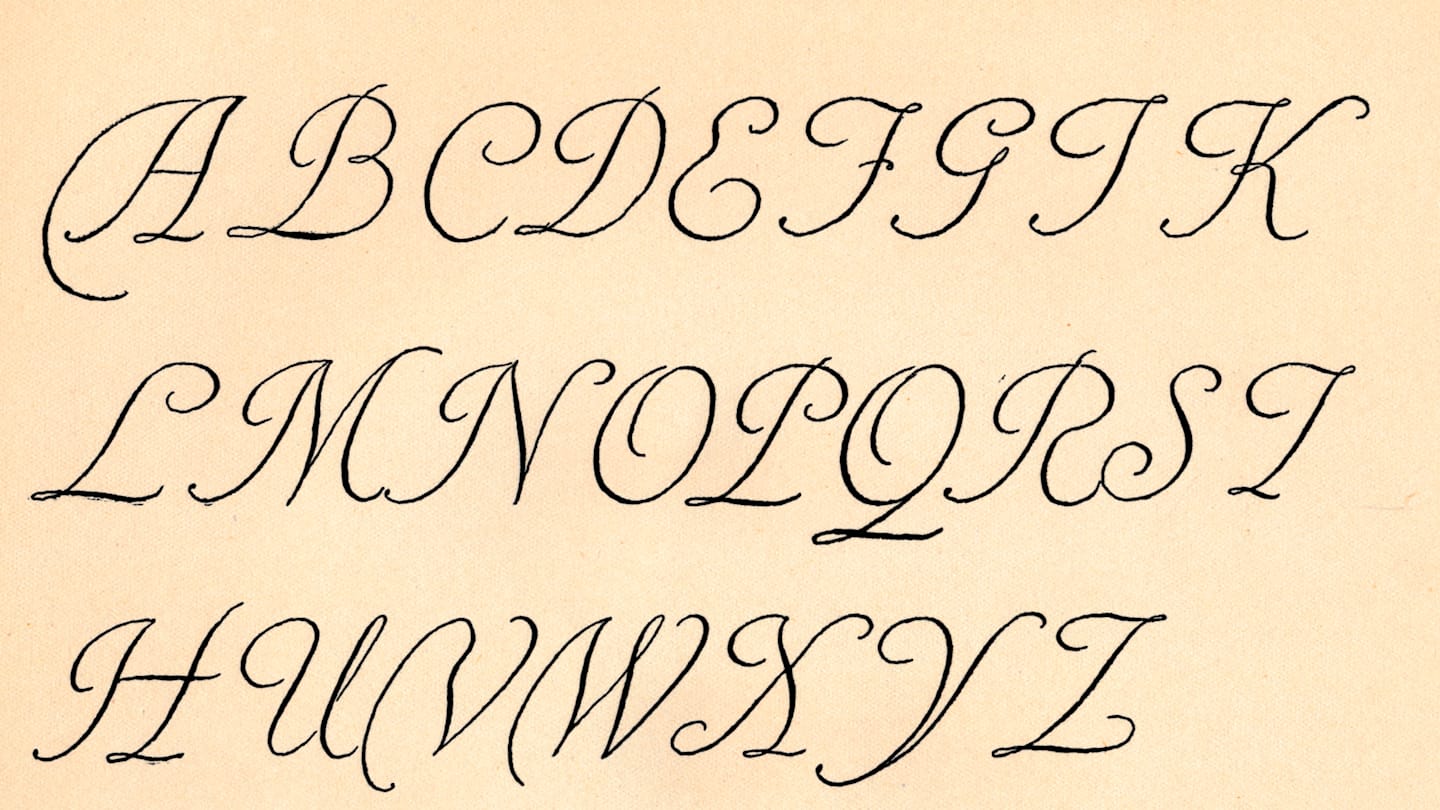 A B C D E F G I K
L M N O P Q R S T
H U V W X Y Z